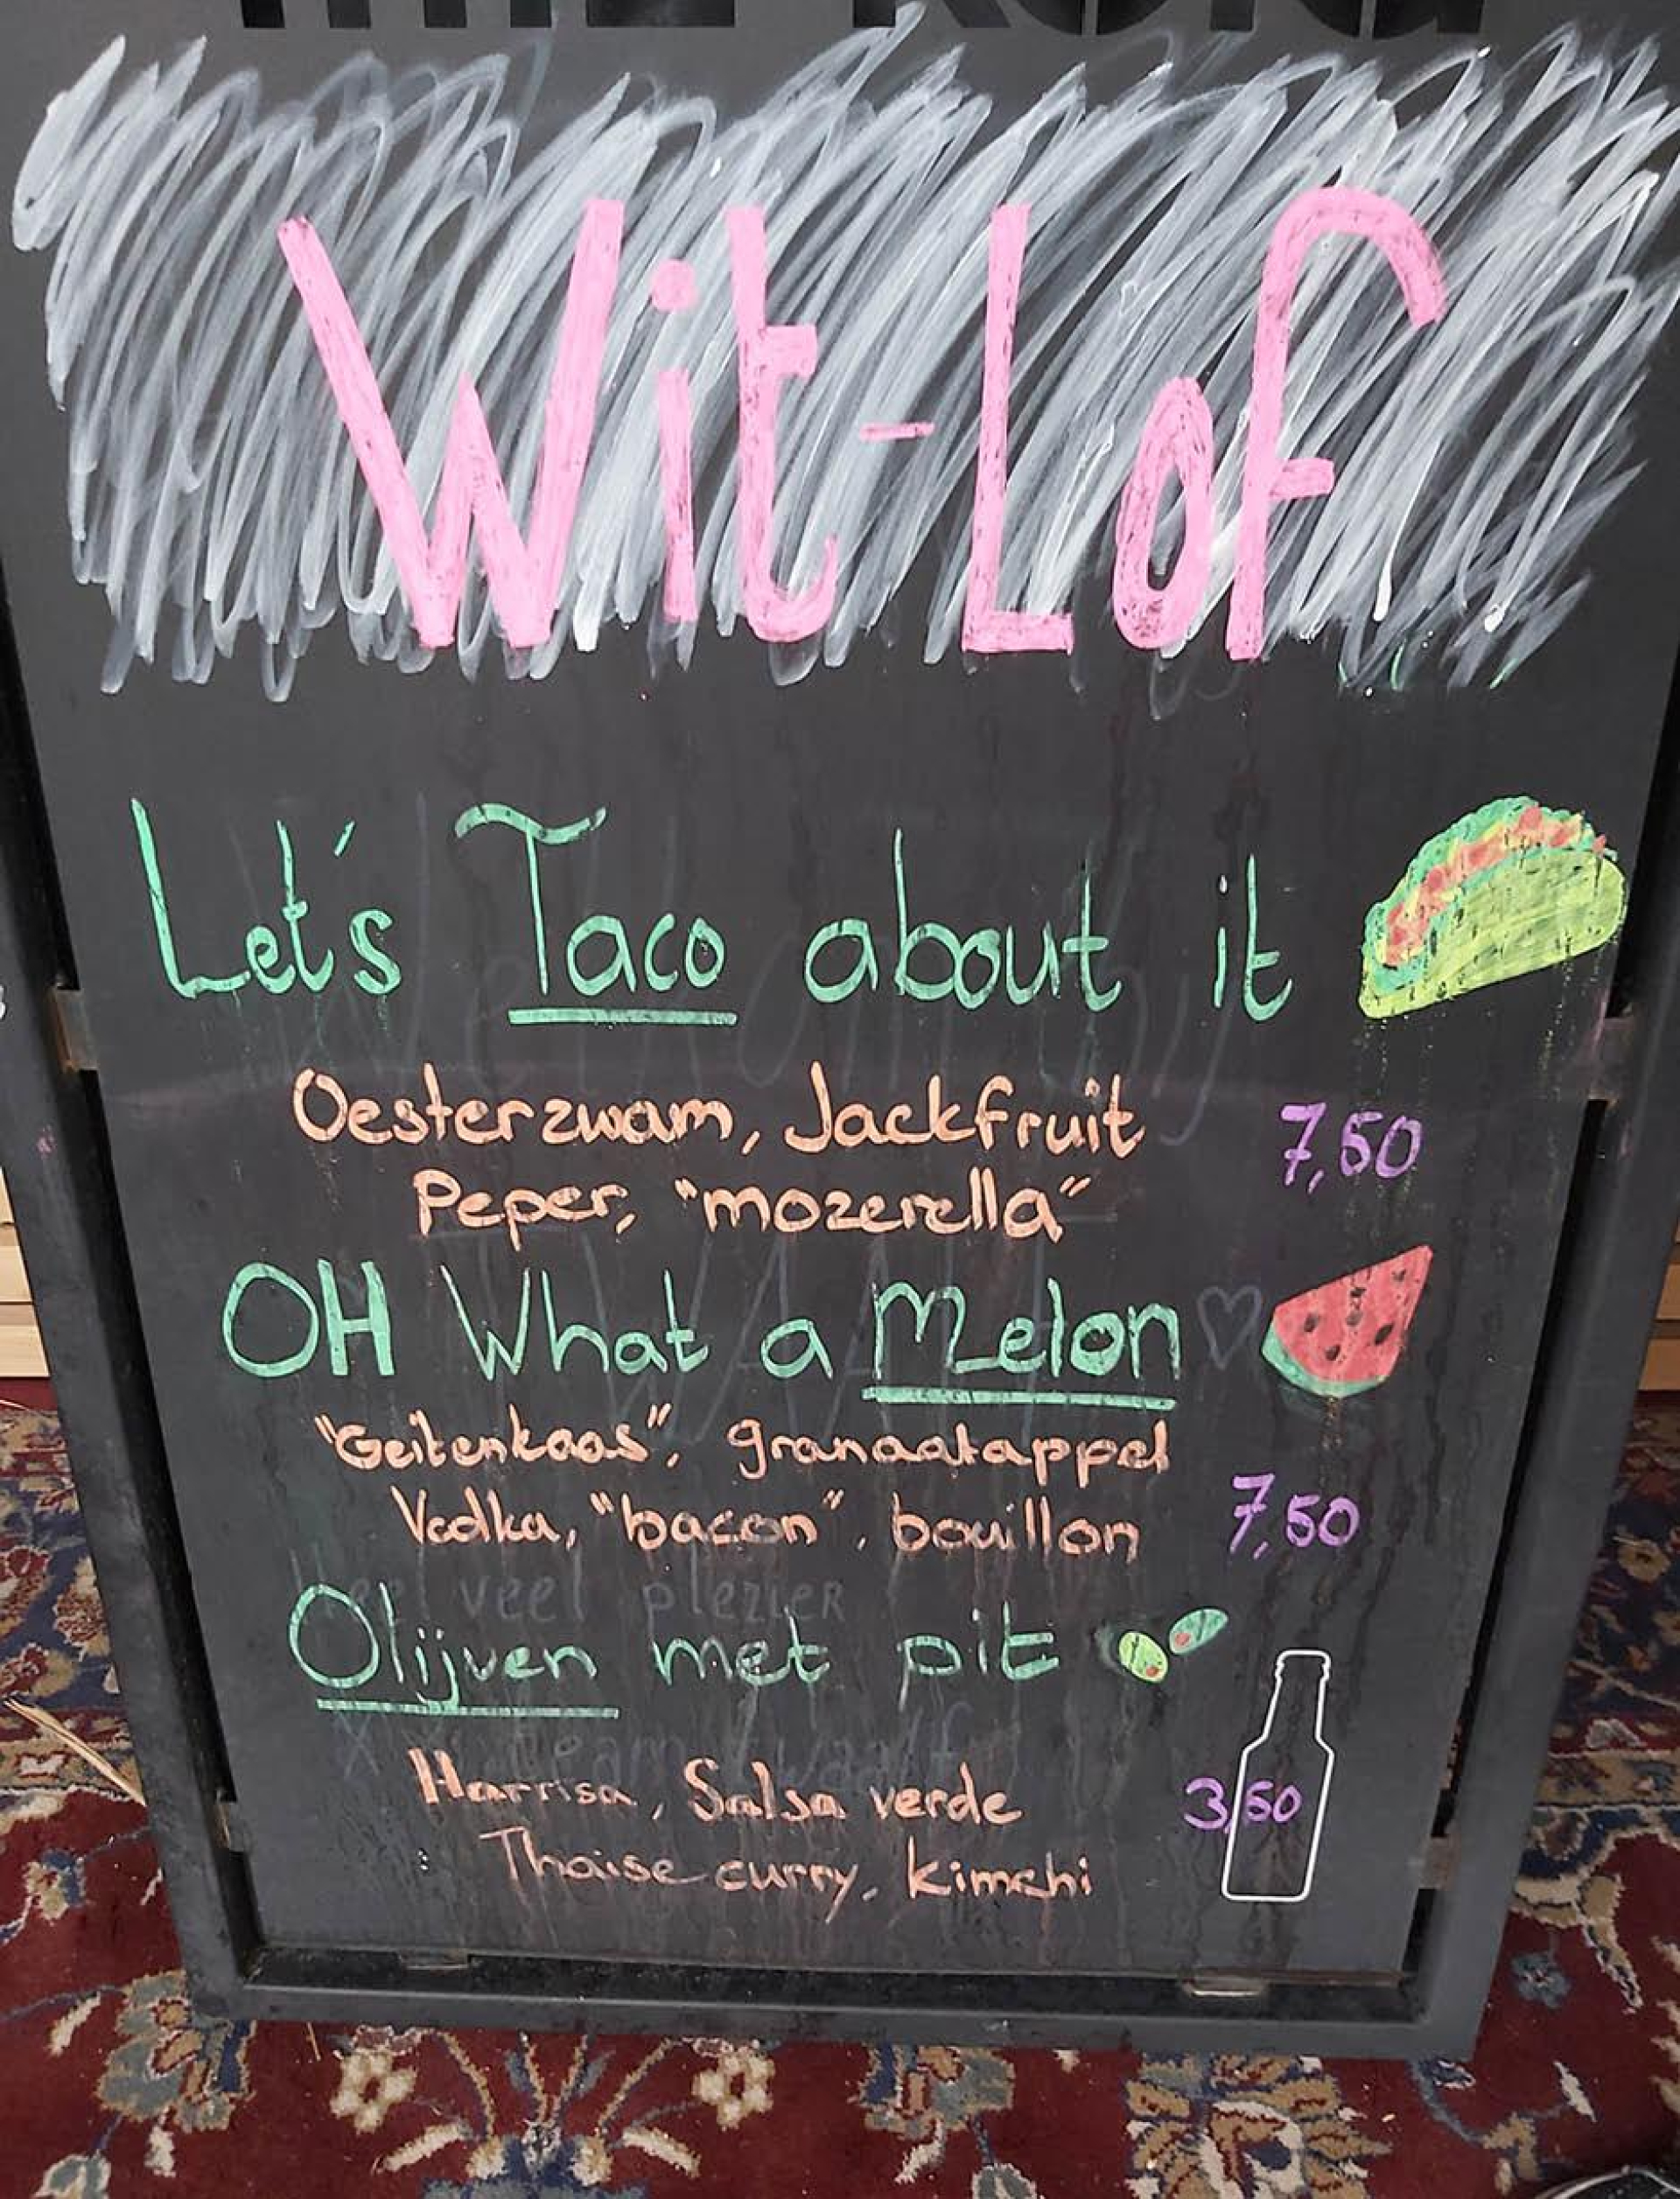 Wit-Lof
Let's Taco about it
Oesterzwam, Jackfruit
Peper, "mozerella"
7,50
OH What a Melon
"Geitenkaas", granaatappel
Vodka, "bacon", bouillon
7,50
heel veel plezier
Olijven met pit
Harrisa, Salsa verde
3,50
Thaise curry, kimchi